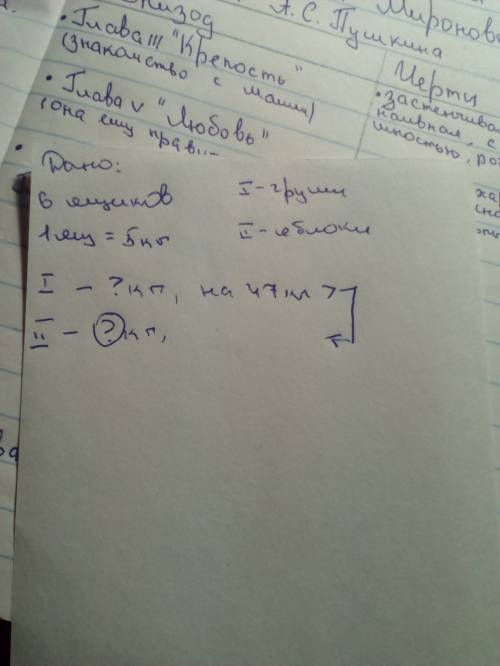 изод
А. С. Пушкина
Миронове
• Глава III "Крепость"
(знакомство с Машей)
• Глава V "Любовь"
(она ему
Черты
• застенчива
наивная, с
Дано:
6 ящиков
1 ящ = 5 кг
I - груши
II - яблоки
I - ? кг, на 47 кг >
II - ? кг,